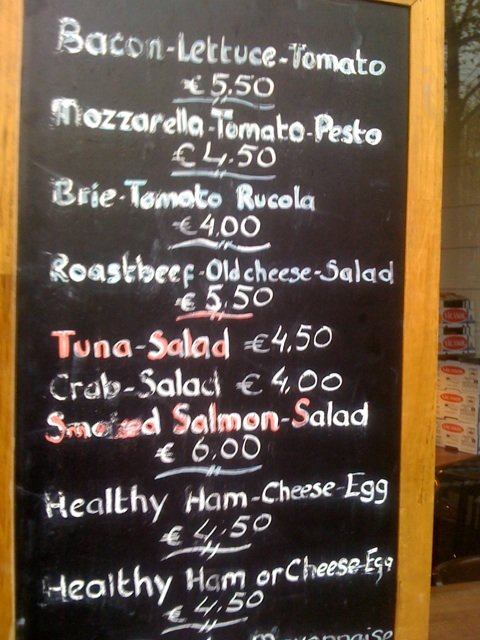 Bacon-Lettuce-Tomato
€ 5.50
Mozzarella-Tomato-Pesto
€ 4.50
Brie-Tomato Rucola
€ 4.00
Roastbeef-Oldcheese-Salad
€ 5.50
Tuna-Salad €4.50
Crab-Salad € 4.00
Smoked Salmon-Salad
€ 6.00
Healthy Ham-Cheese-Egg
€ 4.50
Healthy Ham or Cheese-Egg
€ 4.50
Mayonnaise